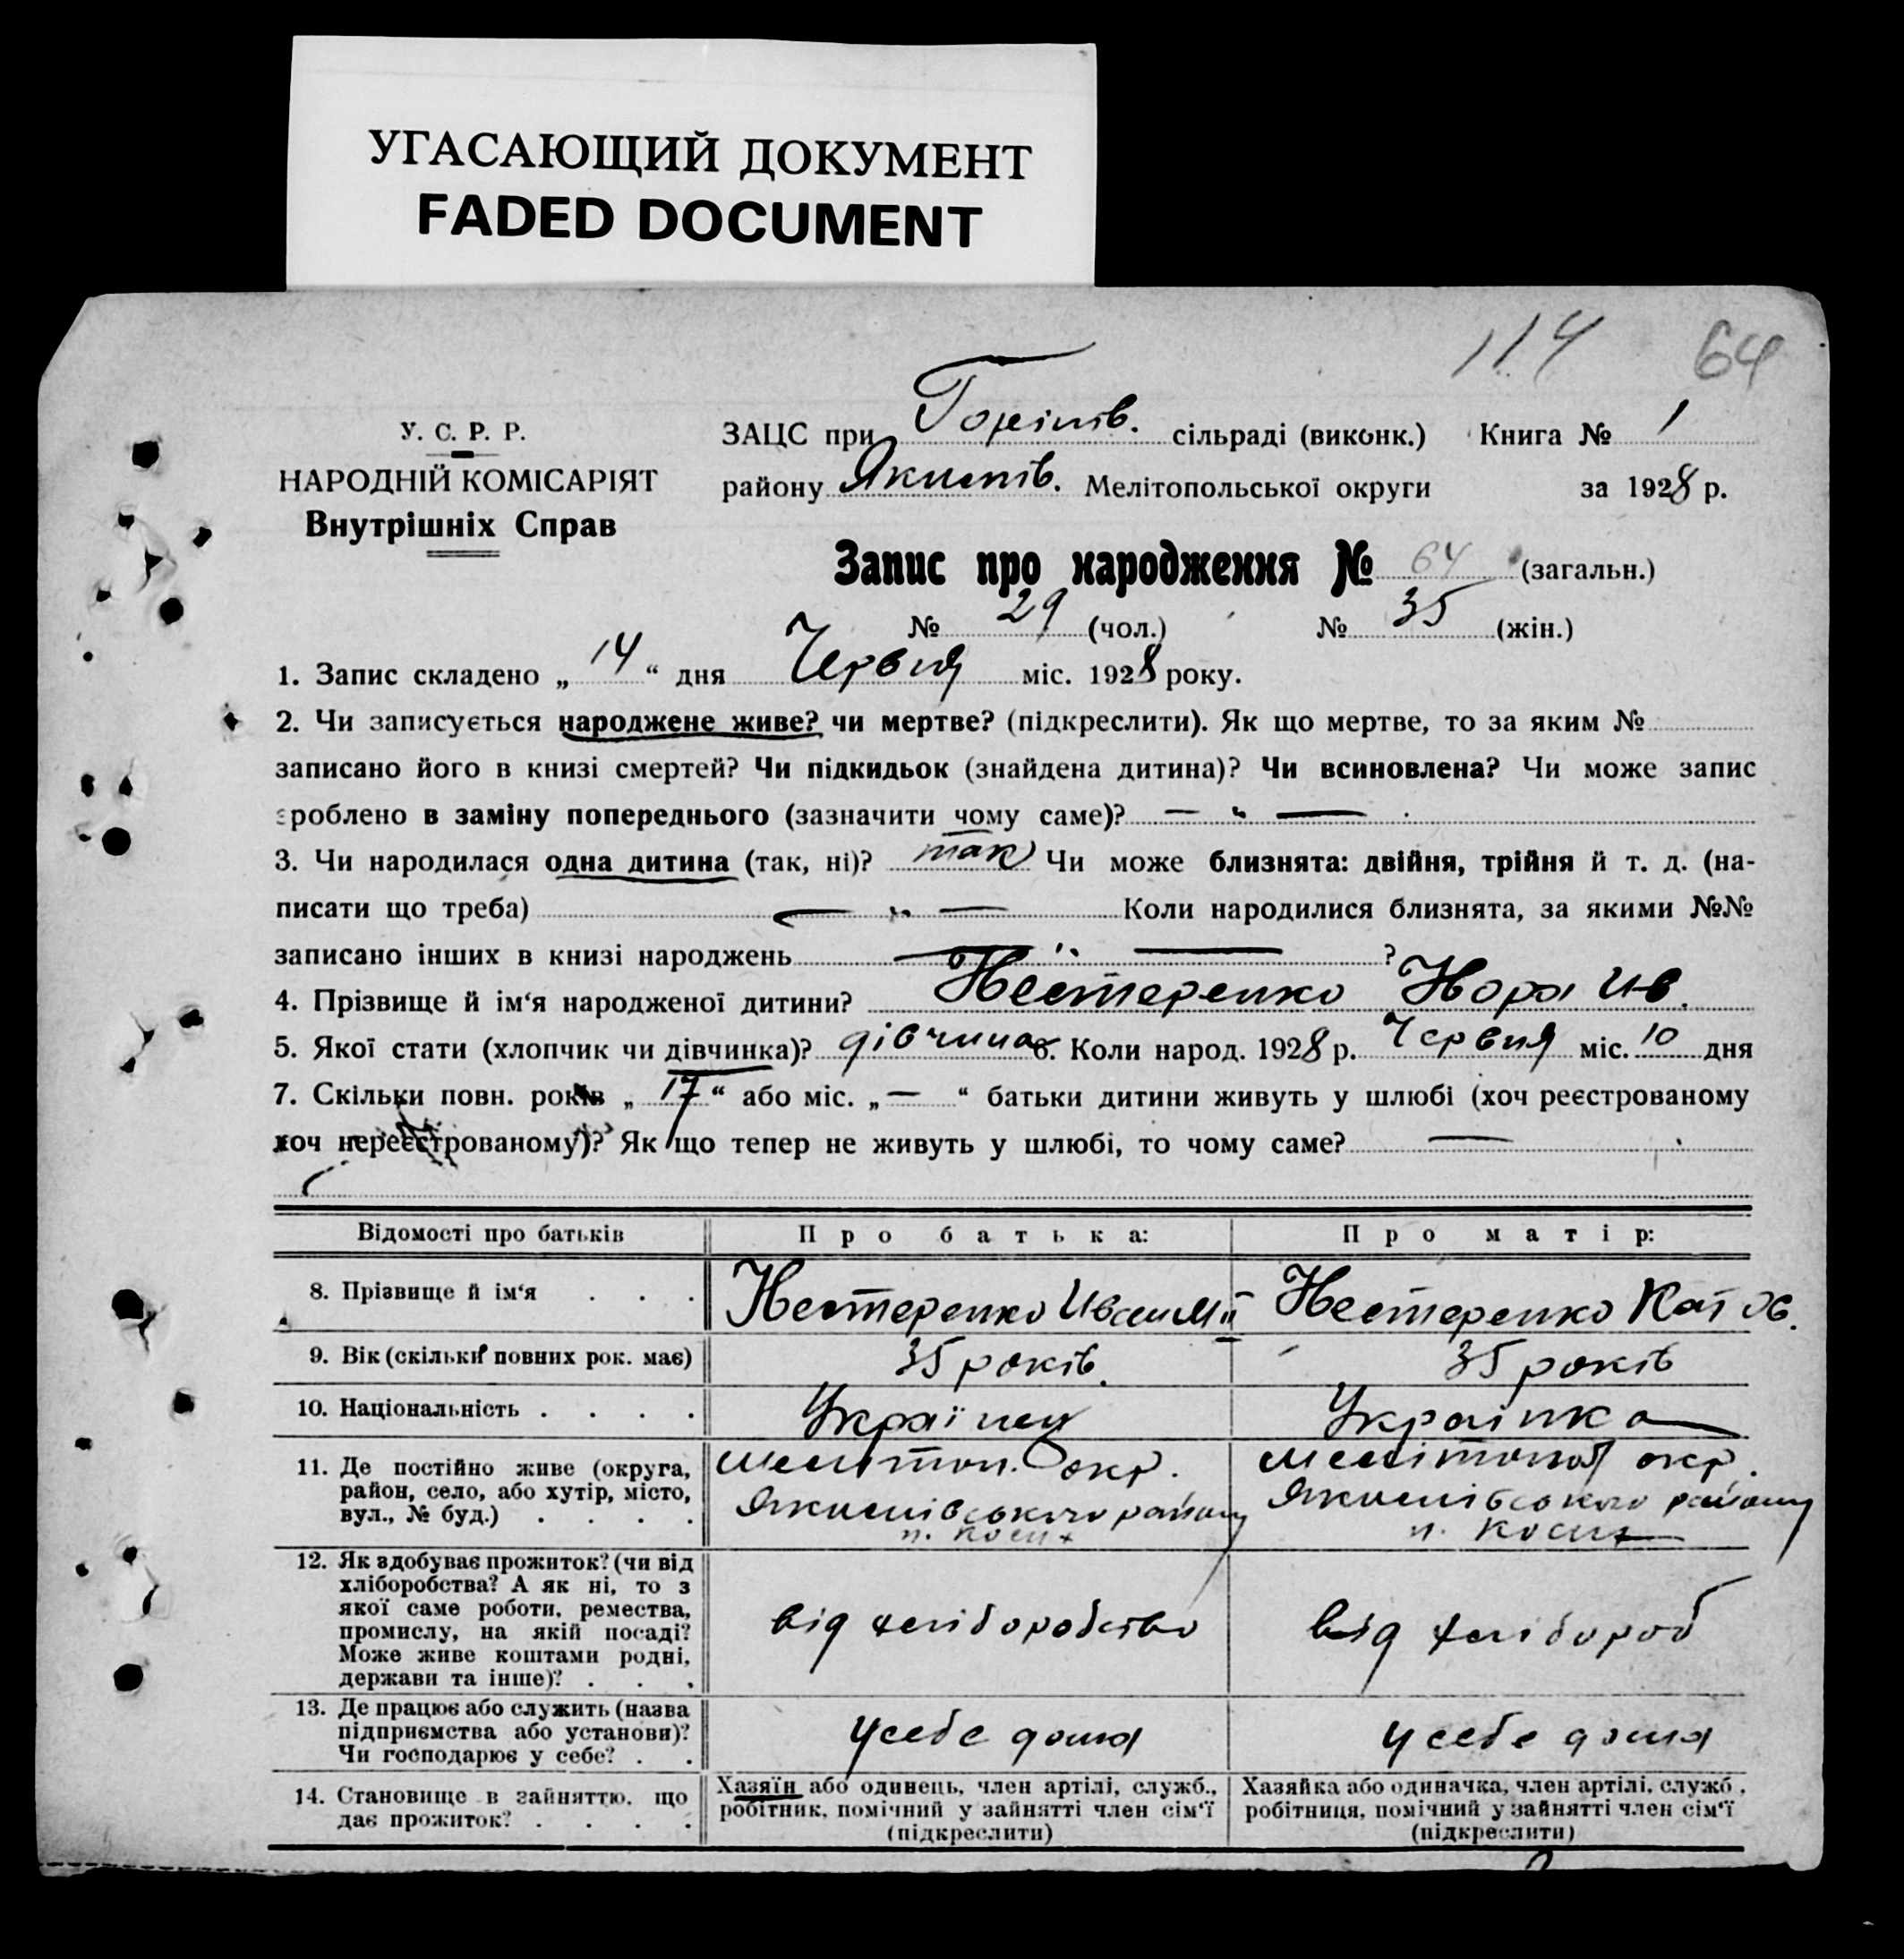 УГАСАЮЩИЙ ДОКУМЕНТ
FADED DOCUMENT
114 64
У. С. Р. Р.
НАРОДНІЙ КОМІСАРІЯТ
Внутрішніх Справ
ЗАЦС при сільраді (виконк.) Книга № 1
району Якимів. Мелітопольської округи за 1928 р.
Запис про народження № 64 (загальн.)
№ 29 (чол.) № 35 (жін.)
1. Запис складено „ 14 “ дня Червня міс. 1928 року.
2. Чи записується народжене живе? чи мертве? (підкреслити). Як що мертве, то за яким №
записано його в книзі смертей? Чи підкидьок (знайдена дитина)? Чи всиновлена? Чи може запис
зроблено в заміну попереднього (зазначити чому саме)? — „ —
3. Чи народилася одна дитина (так, ні)? так Чи може близнята: двійня, трійня й т. д. (на-
писати що треба) — „ — Коли народилися близнята, за якими №№
записано інших в книзі народжень — „ — ?
4. Прізвище й ім‘я народженої дитини? Нестеренко Нора Ив.
5. Якої стати (хлопчик чи дівчинка)? дівчина 6. Коли народ. 1928 р. Червня міс. 10 дня
7. Скільки повн. років „ 17 “ або міс. „ — “ батьки дитини живуть у шлюбі (хоч реєстрованому
хоч нереєстрованому)? Як що тепер не живуть у шлюбі, то чому саме? —
Відомості про батьків Про батька: Про матір:
8. Прізвище й ім‘я . . . Нестеренко Иван Нестеренко Кат
9. Вік (скільки повних рок. має) 35 років. 35 років
10. Національність . . . . Українец Українка
11. Де постійно живе (округа,
район, село, або хутір, місто,
вул., № буд.) . . . .
Мелітоп. окр.
Якимівського району
Мелітопол окр.
Якимівського району
12. Як здобуває прожиток? (чи від
хліборобства? А як ні, то з
якої саме роботи, ремества,
промислу, на якій посаді?
Може живе коштами родні,
держави та інше)? . . .
від хліборобства
від хлібороб
13. Де працює або служить (назва
підприємства або установи)?
Чи господарює у себе? . .
у себе дома
у себе дома
14. Становище в зайняттю, що
дає прожиток? . . . .
Хазяїн або одинець, член артілі, служб.,
робітник, помічний у зайнятті член сім‘ї
(підкреслити)
Хазяйка або одиначка, член артілі, служб.,
робітниця, помічний у зайнятті член сім‘ї
(підкреслити)